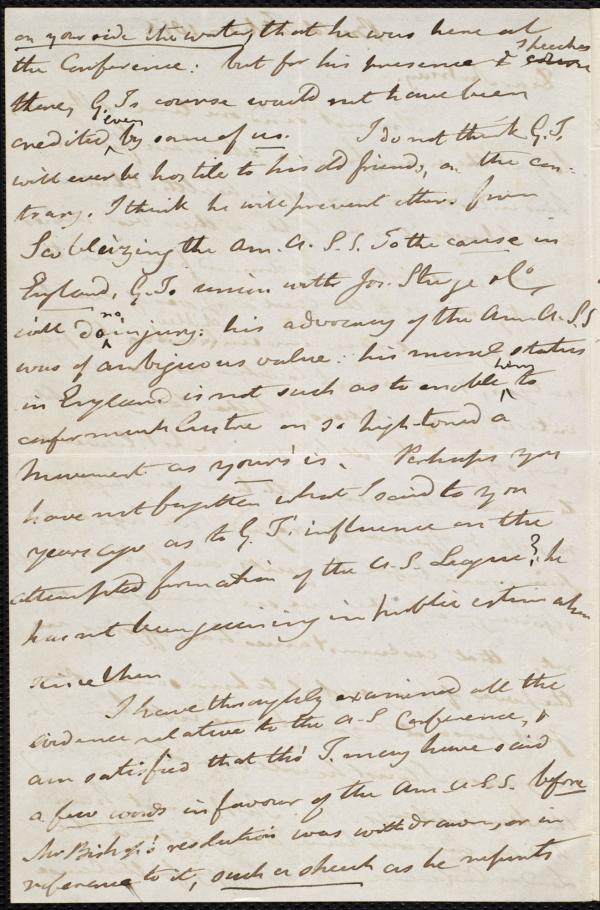 on your side the water, that he was here at
the Conference: but for his presence & speeches
there, G. T's course would not have been
credited, even by some of us. I do not think G. T.
will ever be hostile to his old friends, on the con-
trary. I think he will prevent others from
the Am. A. S. S. To the cause in
England, G. T's union with Jos. Sturge & Co
will do no injury: his advocacy of the Am. A. S. S
was of ambiguous value: his moral status
in England is not such as to enable him to
confer much lustre on so high-toned a
movement as your's is. Perhaps you
have not forgotten what I said to you
years ago as to G. T's influence on the
attempted formation of the A. S. League? he
has not been gaining in public estimation
since then
I have thoroughly examined all the
evidence relative to the A-S Conference, &
am satisfied that tho' T. may have said
a few words in favour of the Am. A. S. S. before
Mr Bishop's resolution was withdrawn, or in
reference to it, such a speech as he reports